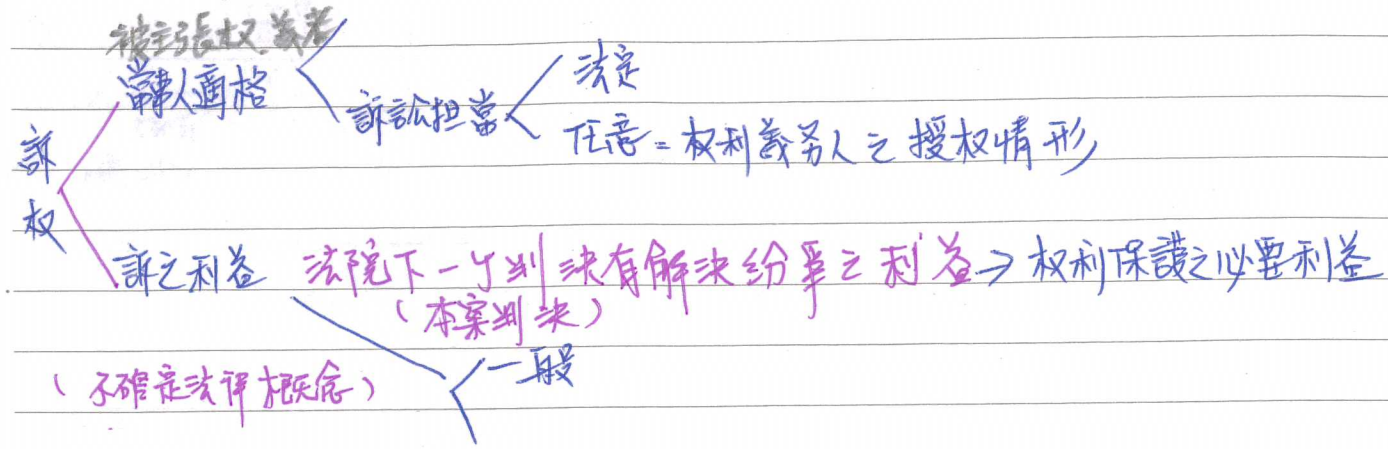 被主張权義者
當事人適格
訴訟担當
法定
任意=权利義务人之授权情形
訴权
訴之利益
法院下一个判決有解決纷爭之利益→权利保護之必要利益
(本案判決)
一般
(不確定法律概念)